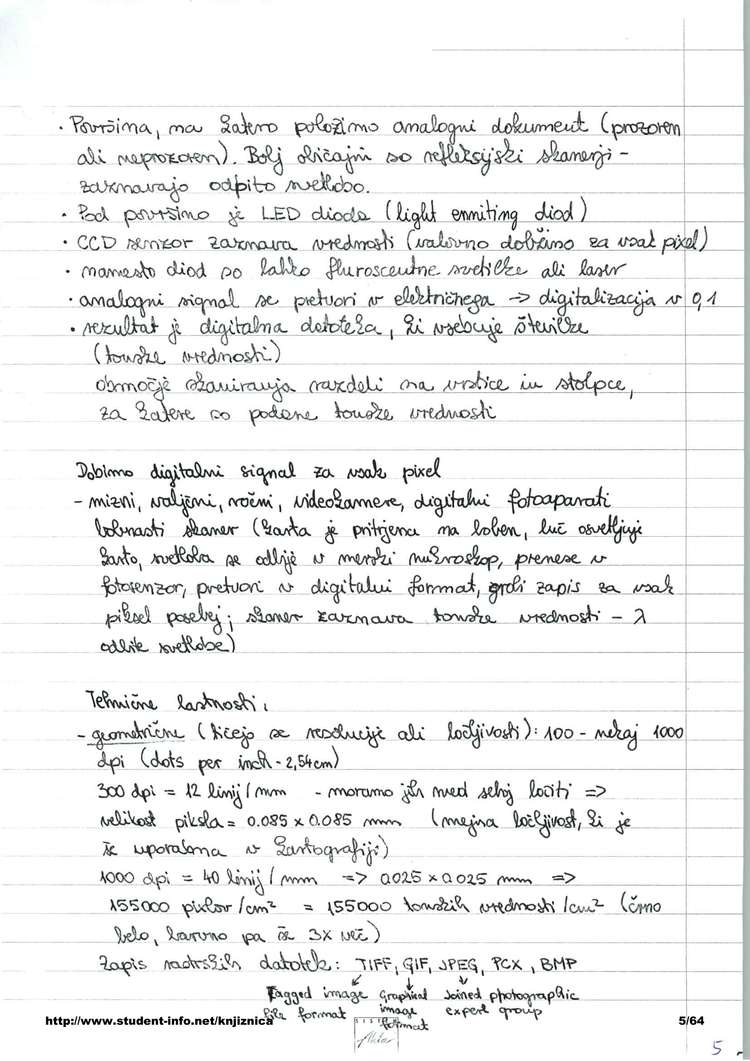 · Površina, na katero položimo analogni dokument (prozoren
ali neprozoren). Bolj običajni so refleksijski skenerji -
zaznavajo odbito svetlobo.
· Pod površino je LED dioda (light emniting diod)
· CCD senzor zaznava vrednosti (valovno dolžino za vsak pixel)
· namesto diod so lahko fluroscentne svetilke ali laser
· analogni signal se pretvori v električnega → digitalizacija v 0,1
· rezultat je digitalna datoteka, ki vsebuje številke
(tonske vrednosti)
območje skaniranja razdeli na vrstice in stolpce,
za katere so podane tonske vrednosti
Dobimo digitalni signal za vsak pixel
- mizni, valjčni, ročni, videokamere, digitalni fotoaparati
bobnasti skaner (karta je pritrjena na boben, luč osvetljuje
karto, svetloba se odbije v merski mikroskop, prenese v
fotosenzor, pretvori v digitalni format, grobi zapis za vsak
piksel posebej; skaner zaznava tonske vrednosti - λ
odbite svetlobe)
Tehnične lastnosti:
- geometrične (tičejo se resolucije ali ločljivosti): 100 - nekaj 1000
dpi (dots per inch - 2,54cm)
300 dpi = 12 linij/mm - moramo jih med seboj ločiti =>
velikost piksla = 0.085 x 0.085 mm (mejna ločljivost, ki je
še uporabna v kartografiji)
1000 dpi = 40 linij/mm => 0.025 x 0.025 mm =>
155000 pixlov/cm² = 155000 tonskih vrednosti/cm² (črno
belo, barvno pa še 3x več)
Zapis rastrskih datotek: TIFF, GIF, JPEG, PCX, BMP
Tagged image Graphical Joined photographic
file format image expert group
format
http://www.student-info.net/knjiznica
5/64
5